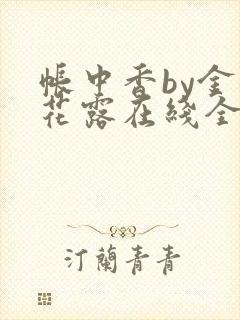 帳中香by金
花露在綫全
汀蘭青青